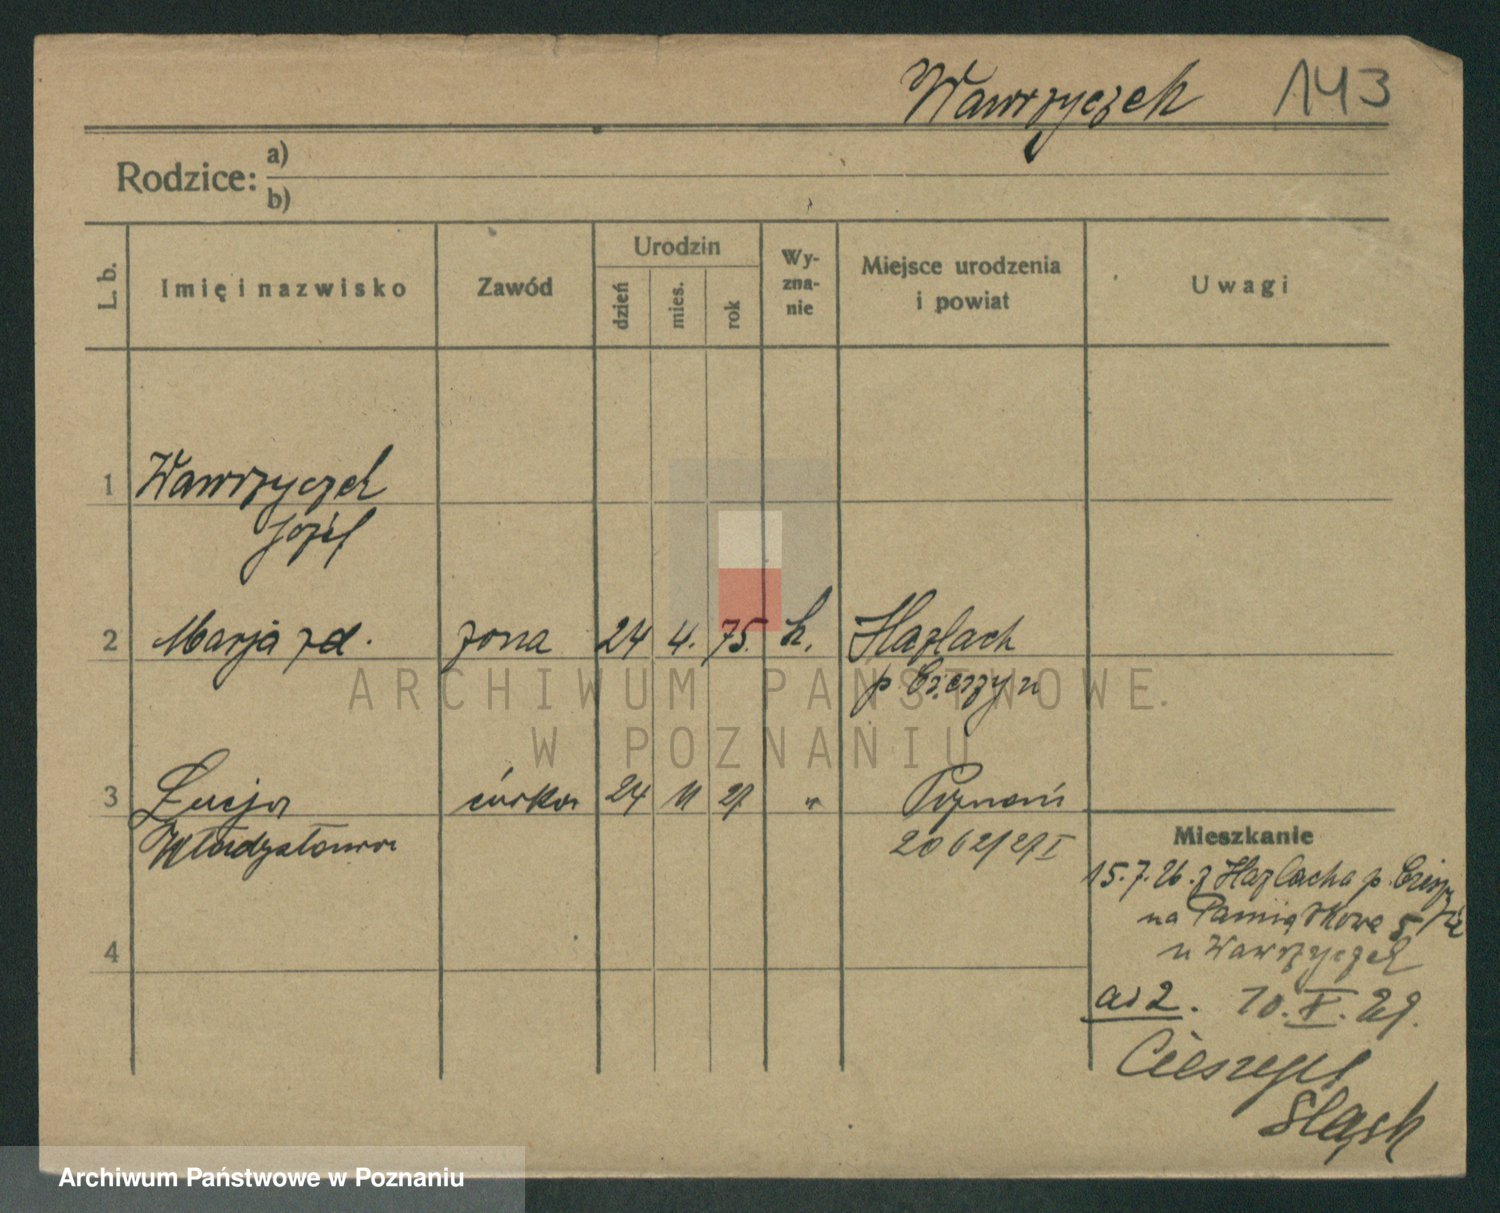 Wawrzyczek 143
Rodzice: a)
b)
L. b.
Imię i nazwisko
Zawód
Urodzin
dzień
mies.
rok
Wy-
zna-
nie
Miejsce urodzenia
i powiat
Uwagi
1 Wawrzyczek
Józef
2 Marja zd. żona 24 4. 75. k. Hazlach
p. Cieszyn
3 Łucja córka 24 11 27 " Poznań
2062/27 I
4
Mieszkanie
15.7.26. z Hazlacha p. Cieszyn
na Pamiątkowe 5
u Wawrzyczek
ad 2. 10. X. 29.
Cieszyn
Śląsk
ARCHIWUM PAŃSTWOWE
W POZNANIU
Archiwum Państwowe w Poznaniu